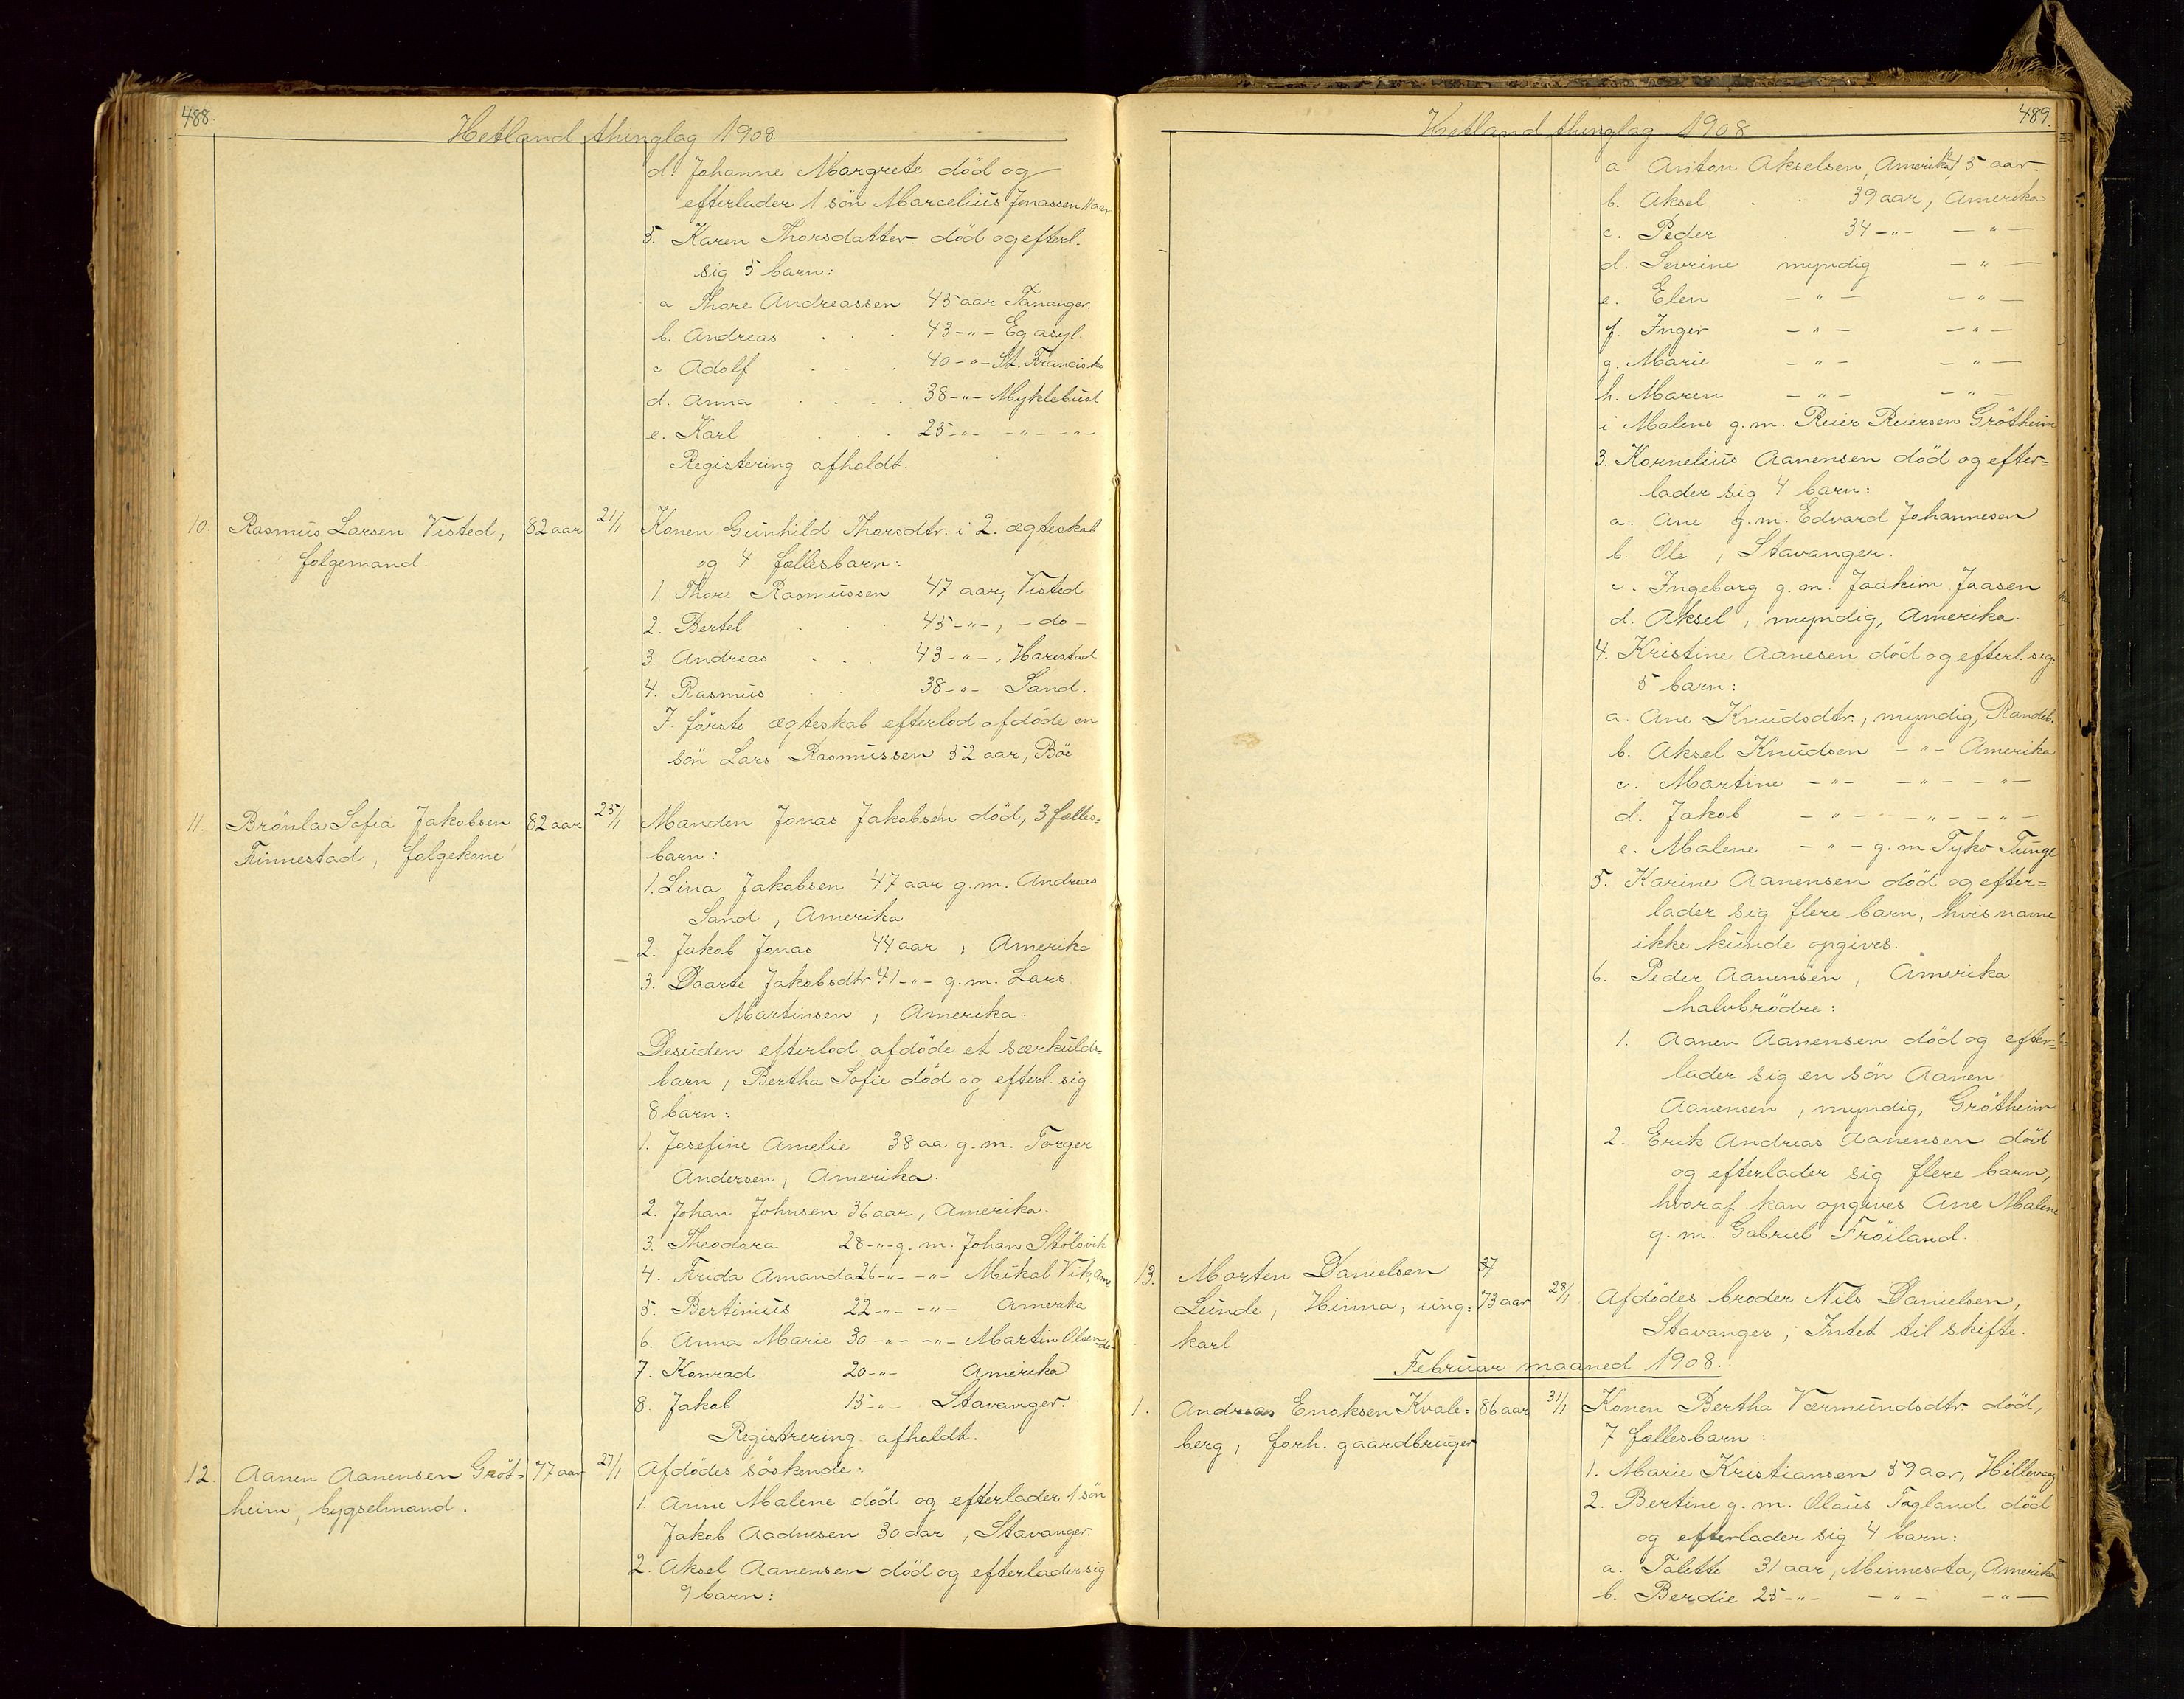 488.
Hetland thinglag 1908.
d. Johanne Margrete död og
efterlader 1 sön Marcelius Jonassen 11 aar
5. Karen Thorsdatter död og efterl.
sig 5 barn:
a Thore Andreassen 45 aar Tananger.
b. Andreas . . . 43 -"- Eg asyl.
c Adolf . . . 40 -"- St. Francisko
d. Anna . . . . 38 -"- Myklebust
e. Karl . . . . 25 -"- -"- -"-
Registering afholdt.
10. Rasmus Larsen Visted, 82 aar 21/1 Konen Gunhild Thorsdtr. i 2. ægteskab
folgemand. og 4 fællesbarn:
1. Thore Rasmussen 47 aar, Visted
2. Bertel . . . 45 -"-, - do -
3. Andreas . . . 43 -"-, Harestad
4. Rasmus . . . 38 -"- Sand.
I förste ægteskab efterlod afdöde en
sön Lars Rasmussen 52 aar, Böe
11. Brönla Sofia Jakobsen 82 aar 25/1 Manden Jonas Jakobsen död, 3 fælles=
Finnestad, folgekone barn:
1. Lina Jakobsen 47 aar g.m. Andreas
Sand, Amerika
2. Jakob Jonas 44 aar, Amerika
3. Daarte Jakobsdtr. 41 -"- g.m. Lars
Martinsen, Amerika.
Desuden efterlod afdöde et særkulds=
barn, Bertha Sofie död og efterl. sig
8 barn:
1. Josefine Amelie 38 aa g.m. Torger
Andersen, Amerika.
2. Johan Johnsen 36 aar, Amerika.
3. Theodora 28 -"- g.m. Johan Stölsvik
4. Frida Amanda 26 -"- -"- Mikal Vik, Ame
5. Bertinius 22 -"- -"- Amerika
6. Anna Marie 30 -"- -"- Martin Olsen -do-
7. Konrad 20 -"- Amerika
8. Jakob 15 -"- Stavanger.
Registrering afholdt.
12. Aanen Aanensen Gröt= 77 aar 27/1 Afdödes söskende:
heim, bygselmand. 1. Anne Malene död og efterlader 1 sön
Jakob Aadnesen 30 aar, Stavanger.
2. Aksel Aanensen död og efterlader sig
9 barn:
489.
Hetland thinglag 1908
a. Anton Akselsen, Amerika, 45 aar
b. Aksel . . 39 aar, Amerika
c. Peder . . 34 -"- - " -
d. Sevrine myndig - " -
e. Elen - " - - " -
f. Inger - " - - " -
g. Marie - " - - " -
h. Maren - " - - " -
i Malene g.m. Reier Reiersen Grötheim
3. Kornelius Aanensen död og efter=
lader sig 4 barn:
a. Ane g.m. Edvard Johannesen
b. Ole, Stavanger.
c. Ingeborg g.m. Joakim Jaasen
d. Aksel, myndig, Amerika.
4. Kristine Aanesen död og efterl. sig:
5 barn:
a. Ane Knudsdtr., myndig, Randeb.
b. Aksel Knudsen - " - Amerika
c. Martine - " - - " - - " -
d. Jakob - " - - " - - " -
e. Malene - " - g.m. Tyko Tunge
5. Karine Aanensen död og efter=
lader sig flere barn, hvis navne
ikke kunde opgives.
6. Peder Aanensen, Amerika
halvbrödre:
1. Aanen Aanensen död og efter=
lader sig en sön Aanen
Aanensen, myndig, Grötheim
2. Erik Andreas Aanensen död
og efterlader sig flere barn,
hvoraf kan opgives Ane Malene
g.m. Gabriel Fröiland.
13. Morten Danielsen 37
Lunde, Hinna, ung= 73 aar 28/1 Afdödes broder Nils Danielsen,
karl Stavanger; Intet til skifte.
Februar maaned 1908.
1. Andreas Enoksen Kvale= 86 aar 31/1 Konen Bertha Værmundsdtr. död,
berg, forh. gaardbruger 7 fællesbarn:
1. Marie Kristiansen 59 aar, Hillevaag
2. Bertine g.m. Olaus Togland död
og efterlader sig 4 barn:
a. Talette 31 aar, Minnesota, Amerika
b. Berdie 25 -"- - " - - " -